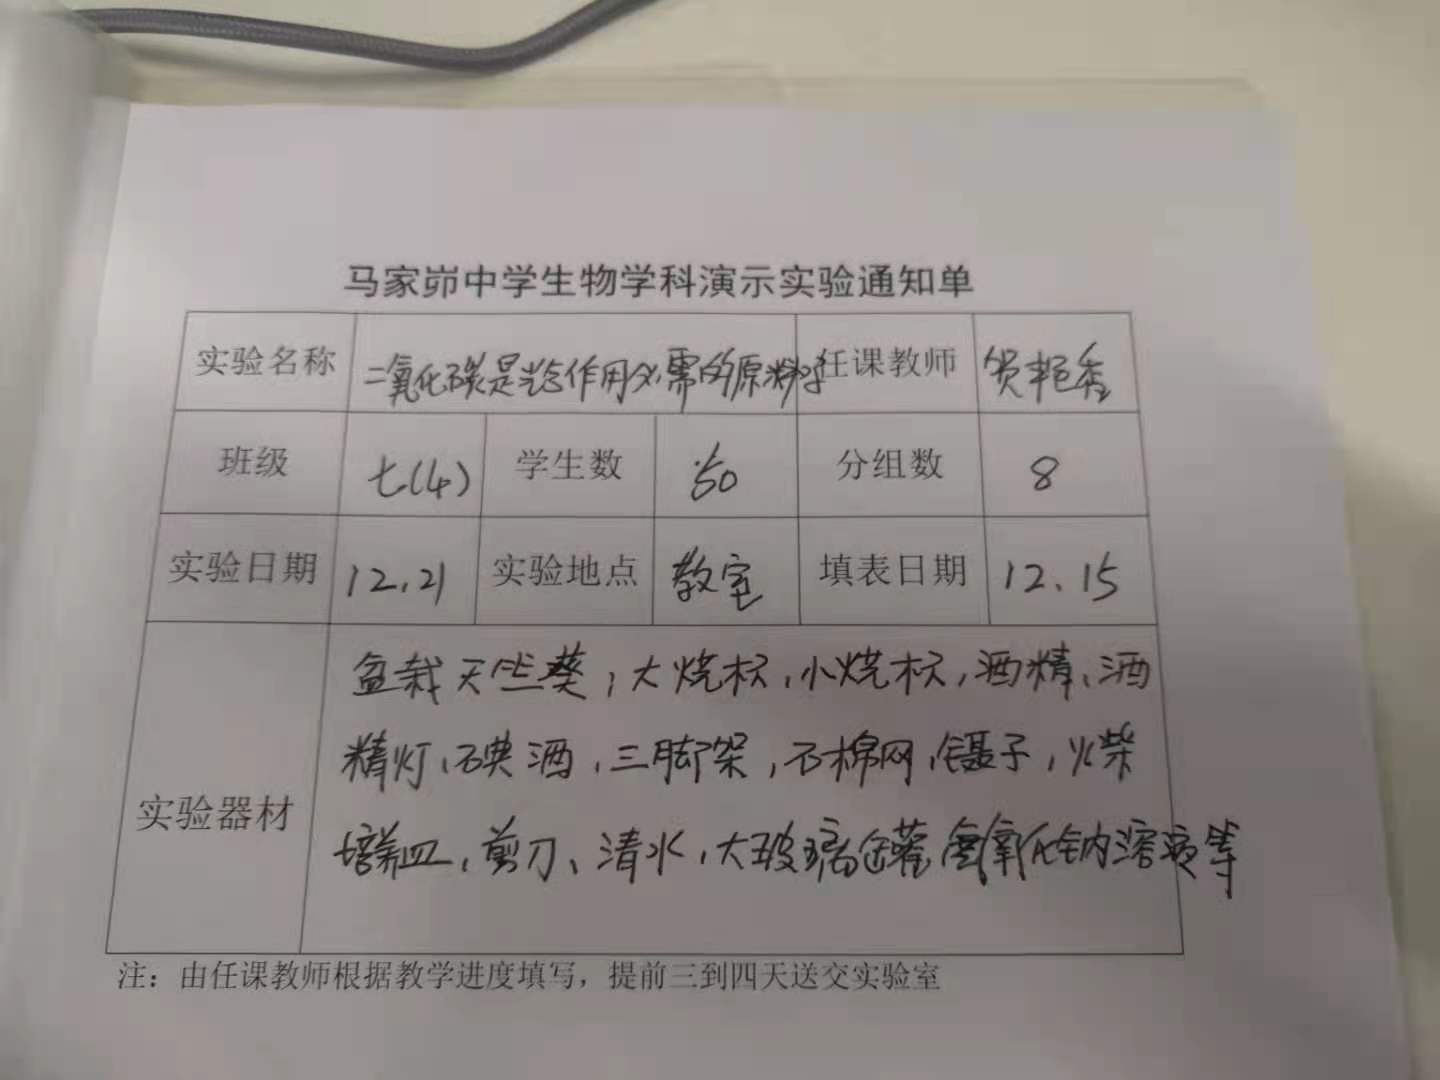 马家峁中学生物学科演示实验通知单
实验名称 二氧化碳是光合作用必需的原料吗 任课教师 贺艳香
班级 七(4) 学生数 50 分组数 8
实验日期 12.21 实验地点 教室 填表日期 12.15
盆栽天竺葵,大烧杯、小烧杯,酒精、酒
精灯、碘酒、三脚架,石棉网、镊子,火柴
实验器材
培养皿、剪刀、清水,大玻璃罐 氢氧化钠溶液等
注：由任课教师根据教学进度填写，提前三到四天送交实验室